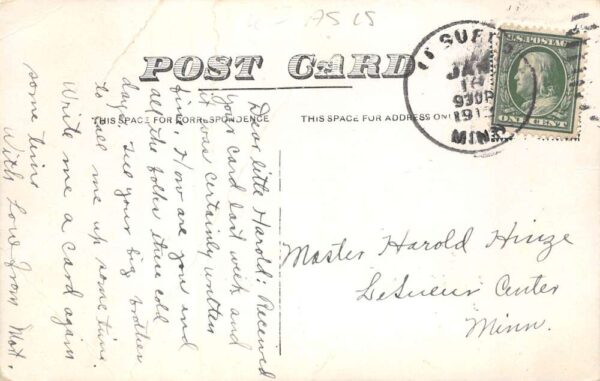 AS15
POST CARD
THIS SPACE FOR CORRESPONDENCE
THIS SPACE FOR ADDRESS ONLY
LE SUEUR
JAN
14
930P
191
MINN
U.S. POSTAGE
ONE CENT
Dear little Harold: Received
your card last week and
it was certainly written
fine. How are you and
all the folks these cold
days. Tell your big brother
to call me up some time.
Write me a card again
some time
With Love from Mott.
Master Harold Hinze
LeSueur Center
Minn.